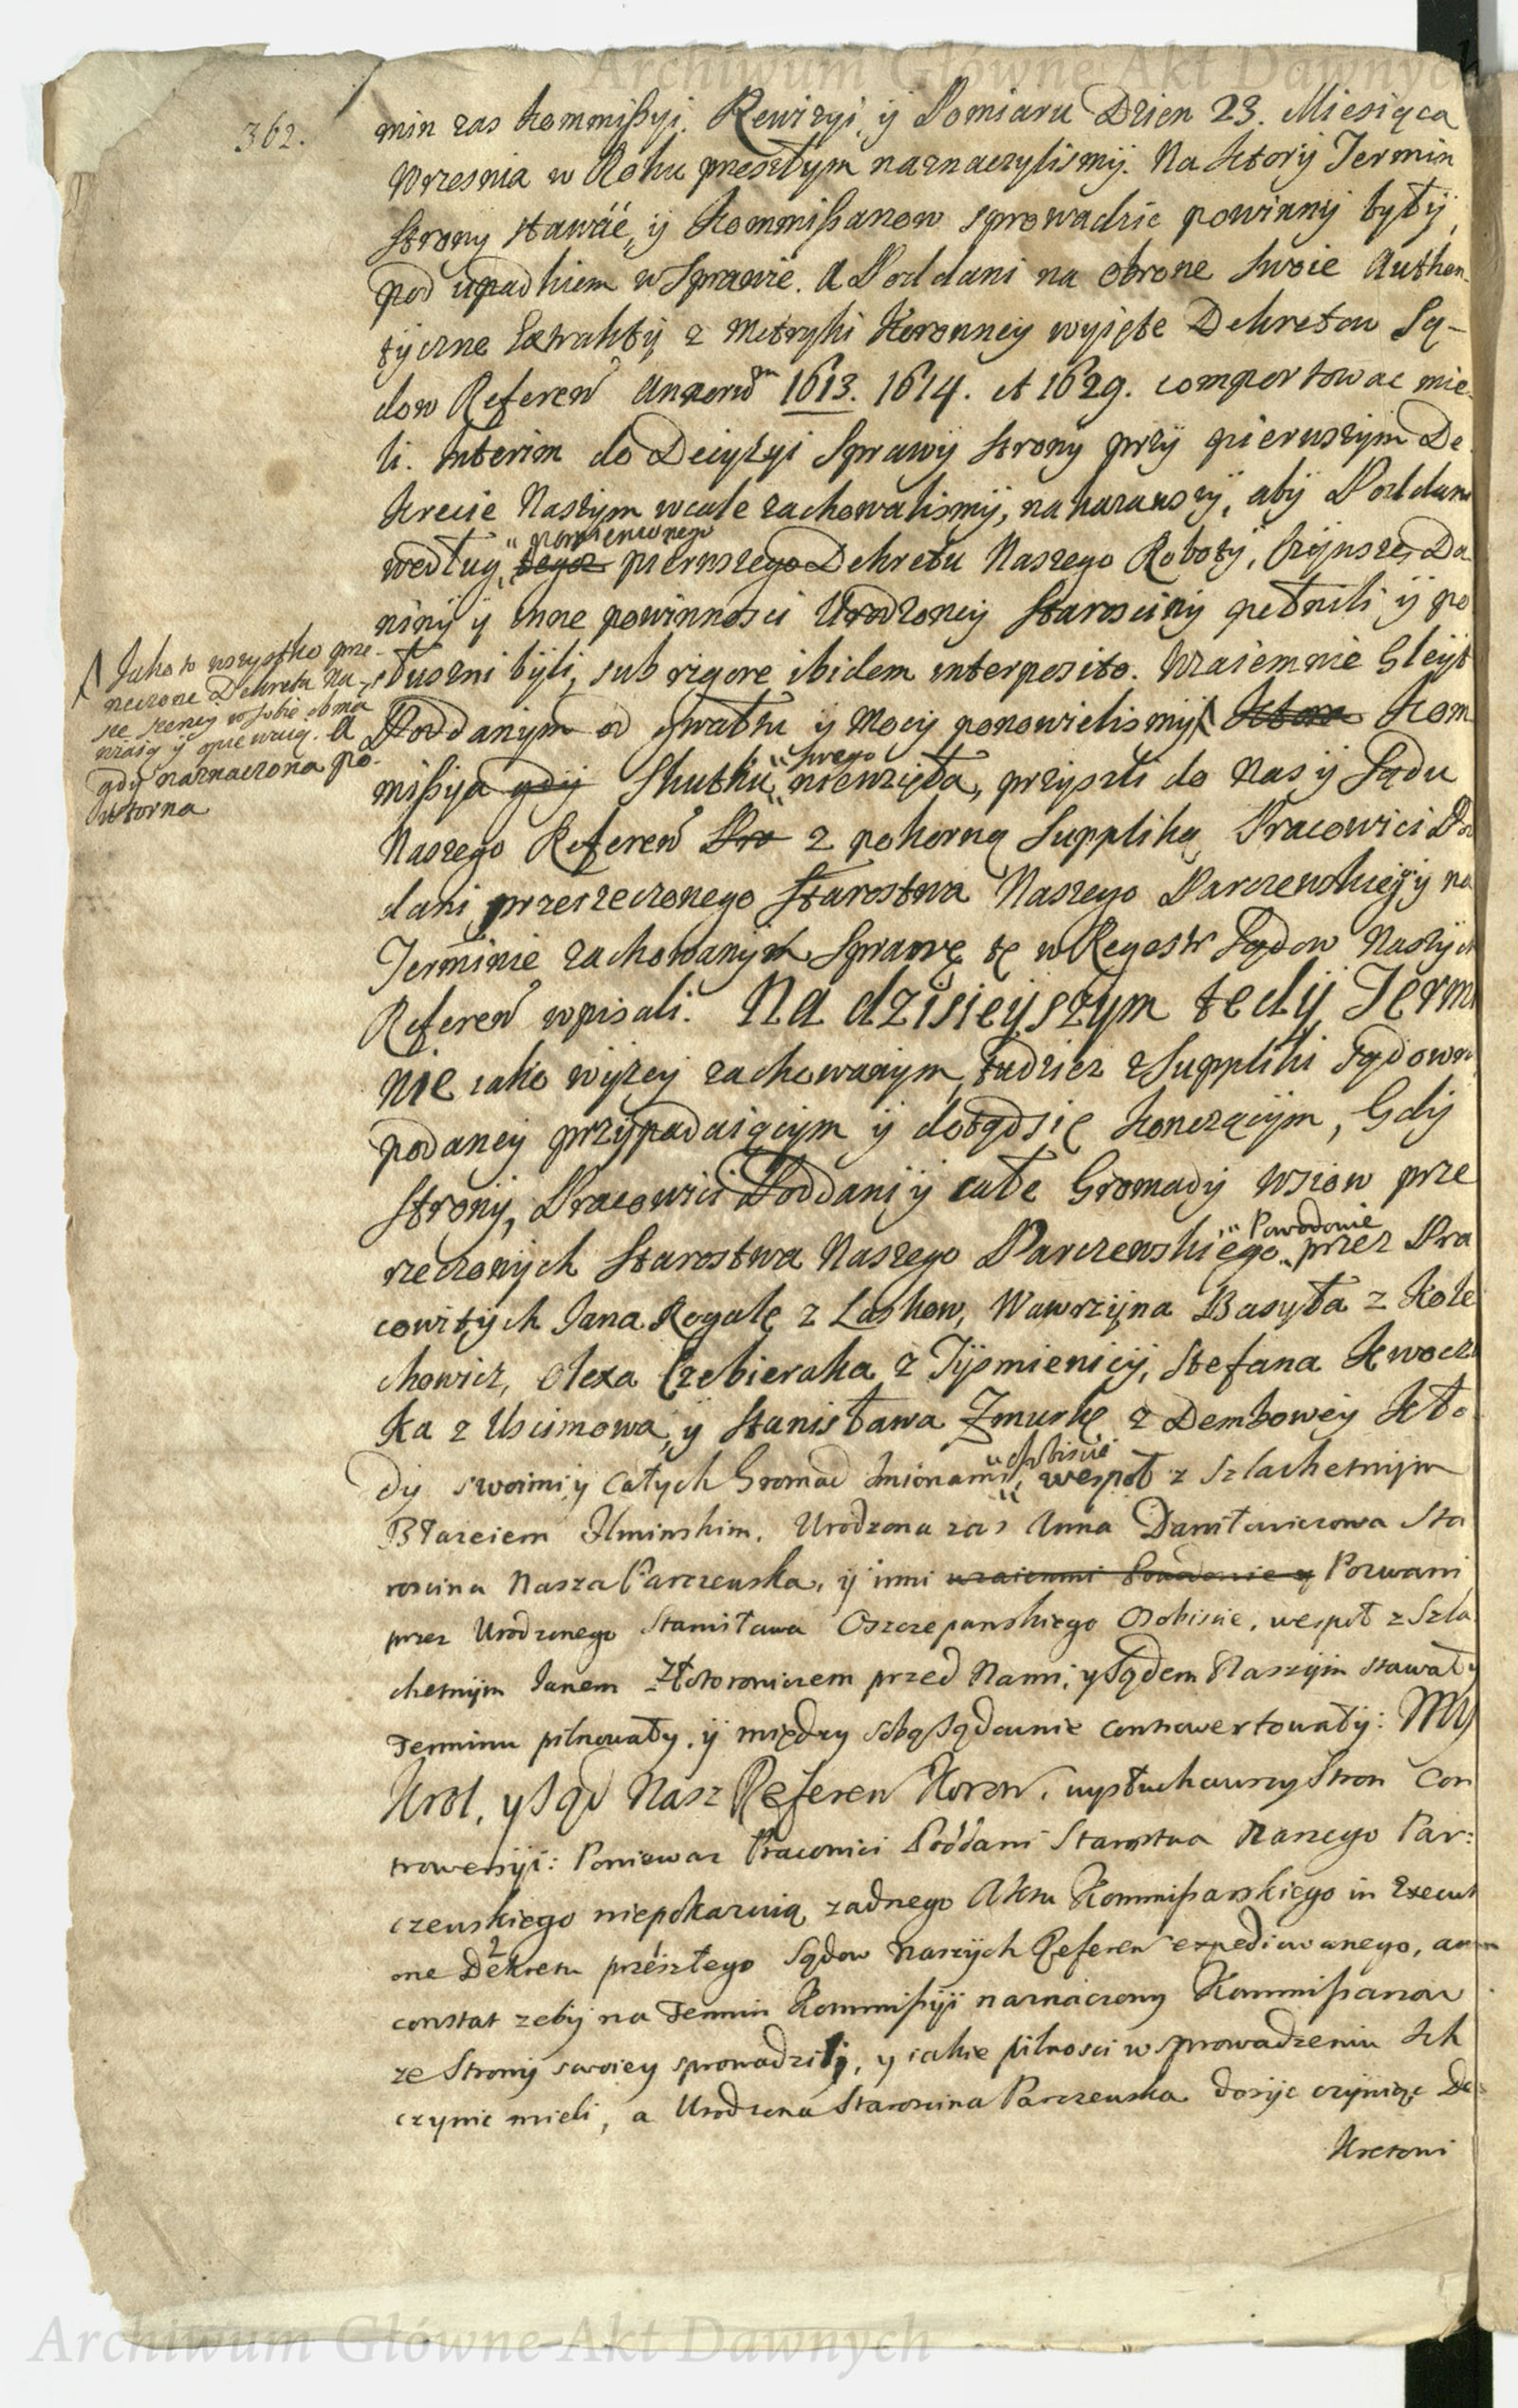 Archiwum Główne Akt Dawnych
362.
min zas Kommißyi. Rewizyi ÿ Pomiaru Dzien 23. Miesiąca
Wrzesnia w Roku przeszłym naznaczylismÿ. Na Ktorÿ Termin
Strony stawáć, ÿ Kommißarzow sprowadzic powinnÿ byłÿ,
pod upadkiem w Sprawie. A Poddani na obrone Swoie Authen-
tÿczne Extraktÿ z Metryki Koronneÿ wyięte Dekretow Są-
dow Referen Annorum 1613. 1614. et 1629. comportowac mie-
li. Interim do Decyzyi Sprawÿ Strony przÿ pierwszÿm De
krecie Naszÿm wcale zachowalismÿ, nakazawszÿ, abÿ Poddani
według pomienionego pierwszego Dekretu Naszego Robotÿ, Czÿnsze, Da
ninÿ ÿ inne powinnosci Urodzoneÿ Staroscinÿ pełnili ÿ po
słuszni bÿli, sub rigore ibidem interposito. Wzaiemnie Gleÿt
Poddanÿm od gwałtu ÿ Mocÿ ponowielismÿ Ktora Kom
Jako to wszystko prze-
rzeczone Dekreta Na-
sze szerzey w sobie obma
wiaią ÿ opiewaią. A
gdÿ naznaczona po-
wtorna
mißya gdÿ Skutku swego niewzięła, przyszli do Nas ÿ Sądu
Naszego Referen Pra z pokorną Suppliką Pracowici Pod
dani przerzeczonego Starostwa Naszego Parczewskieg ÿ na
Terminie zachowanÿm Sprawę tę w Regestr Sądow Naszÿch
Referen wpisali. Na dzisieÿszÿm tedÿ Termi
nie iako wÿzeÿ zachowanÿm, tudziez z Suppliki Sądown
podaneÿ przÿpadaiącÿm ÿ dotąd się Konczącÿm, Gdÿ
Stronÿ, Pracowici Poddani ÿ całe Gromadÿ Wsiow prze
rzeczonÿch Starostwa Naszego Parczewskiego Powodowie przez Pra
cowitÿch Jana Rogalę z Laskow, Wawrzÿna Basyła z Kole
chowicz, Olexa Czebieraka z Tÿsmienicÿ, Stefana Kwocz
Ka z Uscimowa, ÿ Stanisława Zmurkę z Demboweÿ Kło
dÿ swoim ÿ całÿch Gromad Imionami, osobiscie wespoł z Szlachetnÿm
Błazeiem Ilminskim. Urodzona zas Anna Daniłowiczowa Sta
roscina Nasza Parczewska, ÿ inni wzaiemni Powodowie ÿ Pozwani
przez Urodzonego Stanisława Oszczepanskiego Osobiscie, wespoł z Szla
chetnÿm Janem przed Nami, y Sądem Naszÿm stawałÿ
Terminu pilnowałÿ, ÿ między sobą Sądownie controwertowałÿ: My
Krol, y Sąd Nasz Referen Koron. wysłuchawszy Stron Con
trowersÿi: Poniewaz Pracowici Poddani Starostwa Naszego Par:
czewskiego niepokazuią zadnego Aktu Kommißarskiego in Execut
one Dekretu przeszłego Sądow Naszÿch Referen expediowanego, a
constat zebÿ na Termin Kommißÿi naznaczony Kommißarzow
ze Stronÿ swoiey sprowadzilÿ, y iakie pilnosci w sprowadzeniu Ich
czynic mieli, a Urodzona Staroscina Parczewska dosÿc czÿniąc De
Kretowi
Archiwum Główne Akt Dawnych